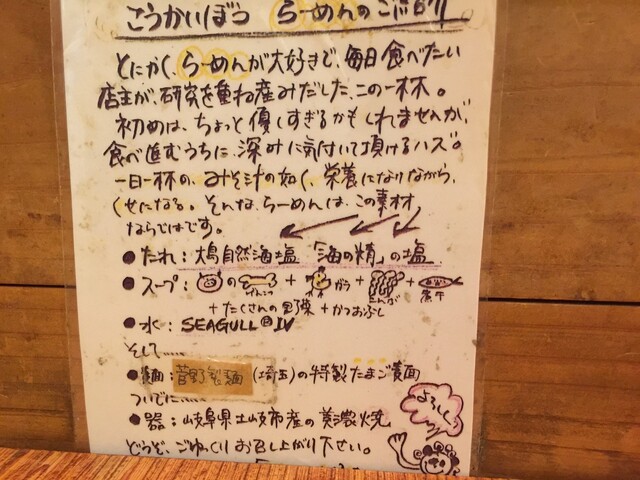 こうかいぼう らーめんのご紹介
とにかく、らーめんが大好きで、毎日食べたい
店主が、研究を重ね産みだした、この一杯。
初めは、ちょっと優しすぎるかもしれませんが、
食べ進むうちに、深みに気付いて頂けるハズ。
一日一杯の、みそ汁の如く、栄養になりながら、
くせになる。そんな、らーめんは、この素材
ならではです。
●たれ：大島自然海塩「海の精」の塩
●スープ：の げんこつ + ガラ + こんぶ + 煮干
+ たくさんの野菜 + かつおぶし
●水：SEAGULL Ⅳ
そして……
●麺：菅野製麺(埼玉)の特製たまご麺
ついでに……
●器：岐阜県土岐市産の美濃焼
どうぞ、ごゆっくりお召し上がり下さい。